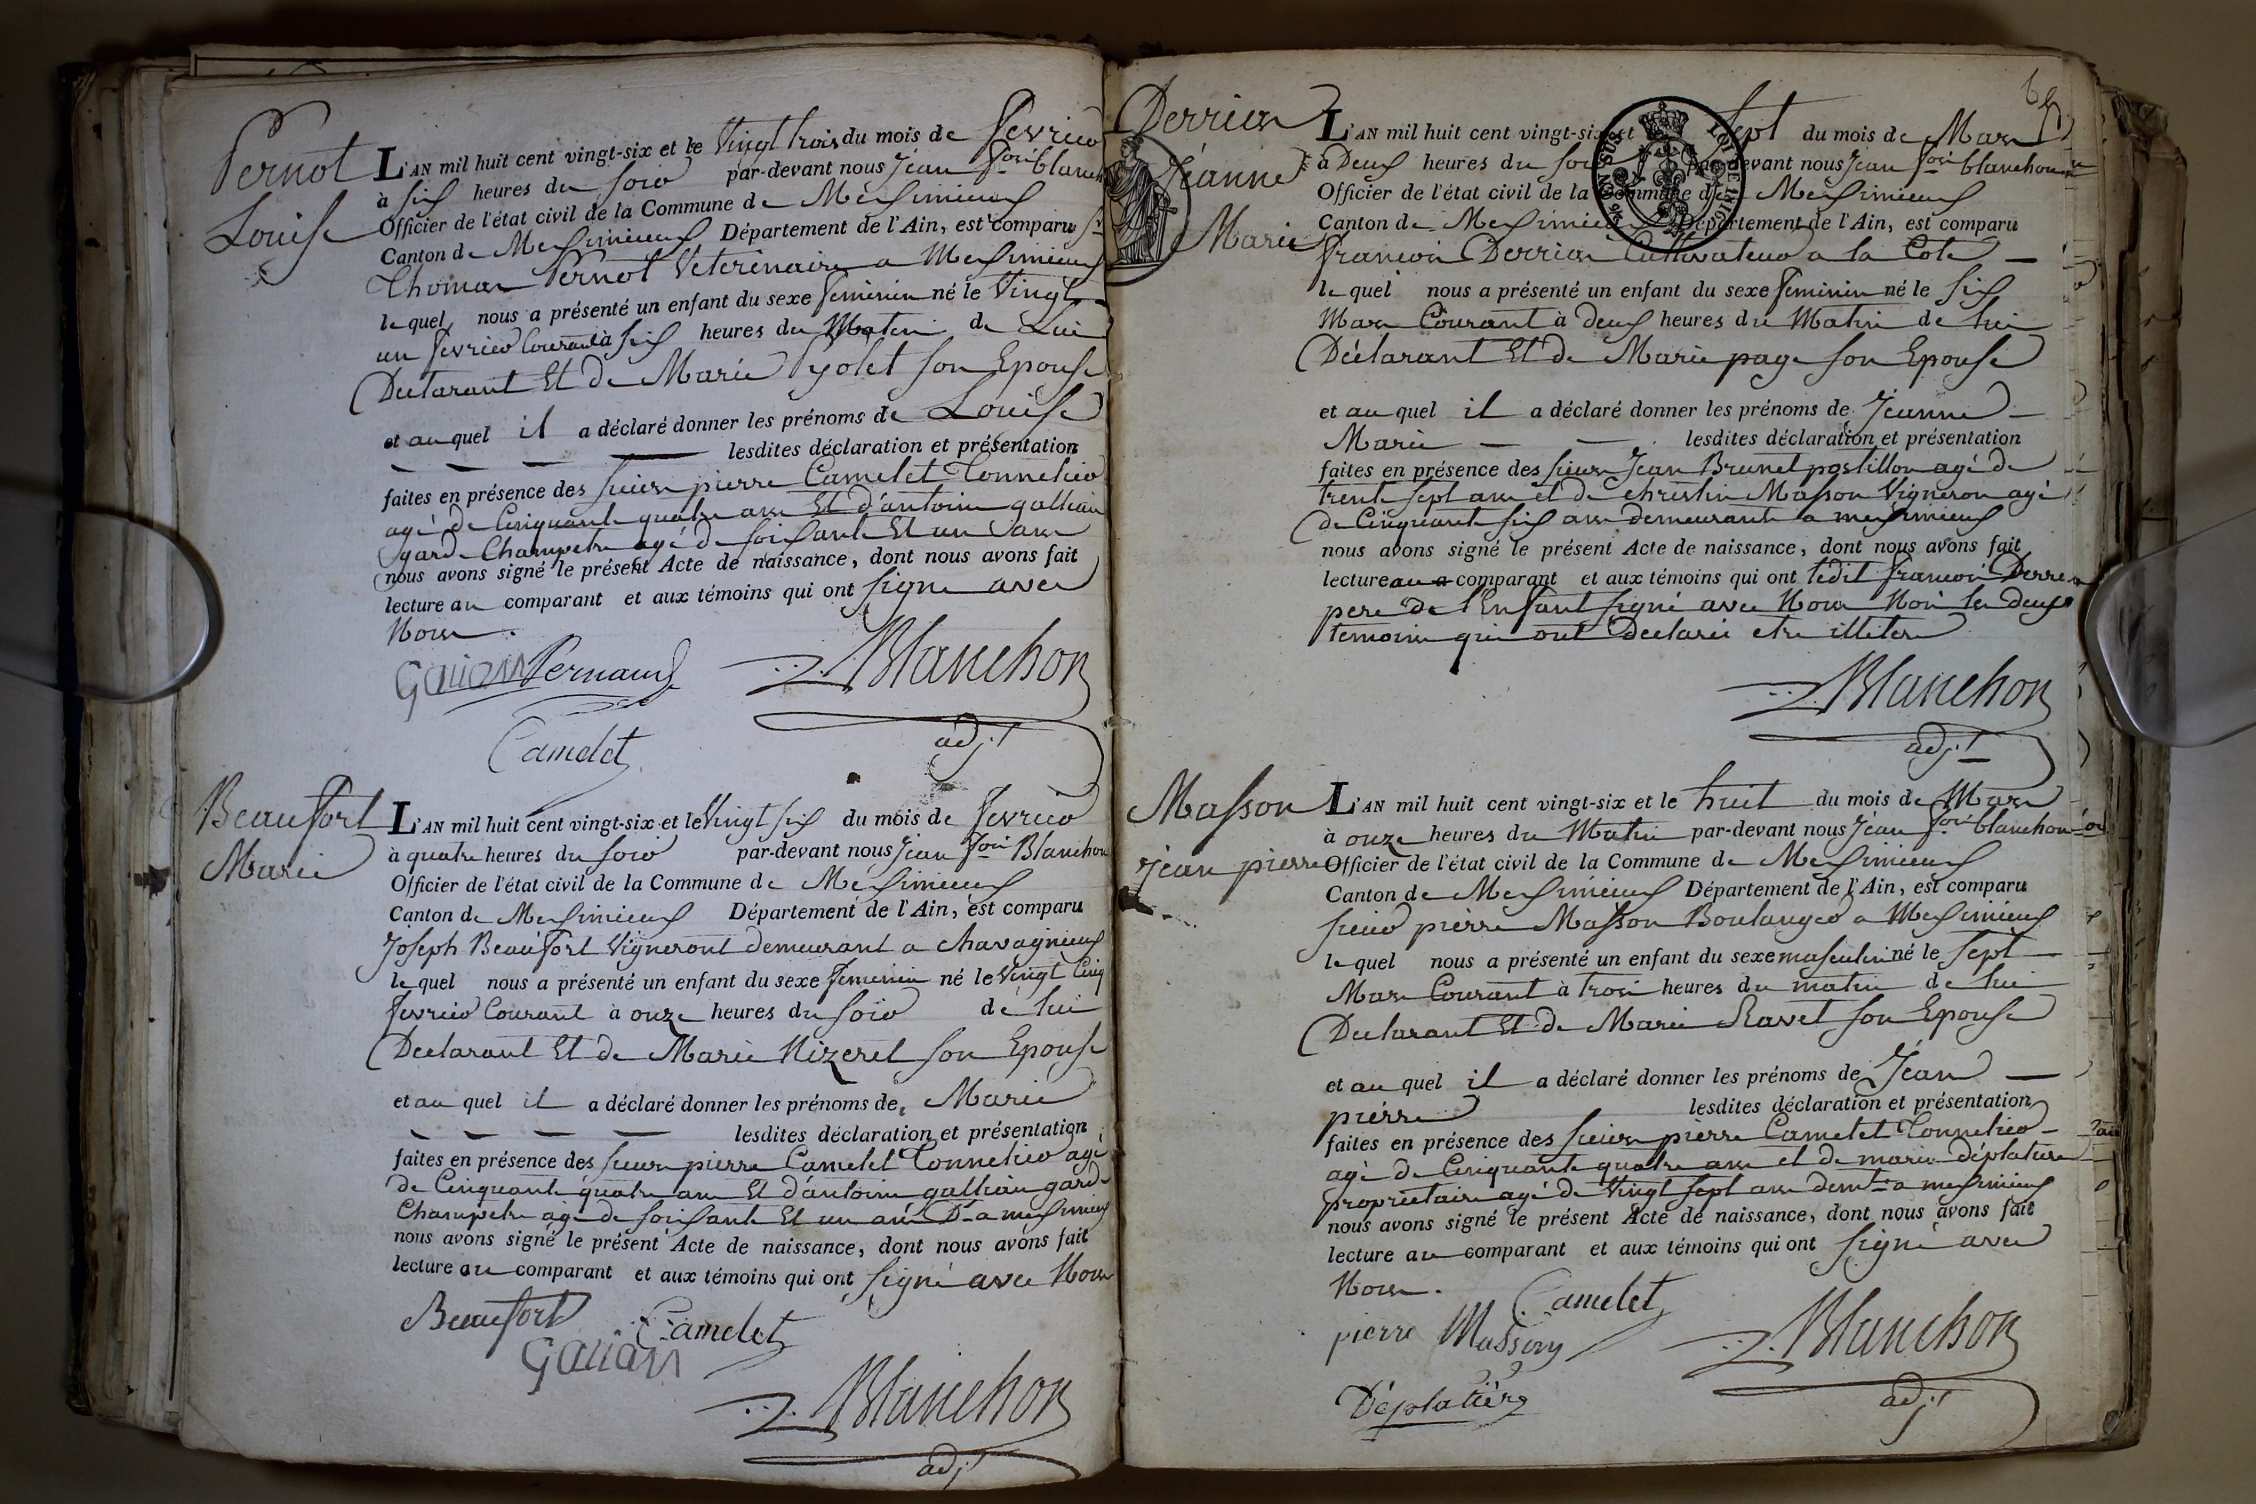 Pernot
Louise
L'AN mil huit cent vingt-six et le Vingt trois du mois de fevrier
à six heures du soir par-devant nous Jean fois blanch
Officier de l'état civil de la Commune de Meximieux
Canton de Meximieux Département de l'Ain, est comparu Sr
Thomas Pernot Veterinaire a Meximieux
lequel nous a présenté un enfant du sexe feminin né le Vingt
un fevrier Courant à six heures du Matin de Lui
Declarant Et de Marie Pyolet son Epouse
et auquel il a déclaré donner les prénoms de Louise
lesdites déclaration et présentation
faites en présence des sieurs pierre Camelet Tonnelier
agé de Cinquante quatre ans Et d'antoine gallian
garde Champetre agé de soixante Et un ans
nous avons signé le présent Acte de naissance, dont nous avons fait
lecture au comparant et aux témoins qui ont signé avec
Nous.
Galian Pernaud Blanchon
Camelet adjt
Beaufort
Marie
L'AN mil huit cent vingt-six et le Vingt six du mois de fevrier
à quatre heures du soir par-devant nous Jean fois Blanchon
Officier de l'état civil de la Commune de Meximieux
Canton de Meximieux Département de l'Ain, est comparu
Joseph Beaufort Vigneront demeurant a chavagnieux
lequel nous a présenté un enfant du sexe feminin né le Vingt Cinq
fevrier Courant à onze heures du soir de lui
Declarant Et de Marie Nizeret son Epouse
et au quel il a déclaré donner les prénoms de Marie
lesdites déclaration et présentation
faites en présence des sieurs pierre Camelet Tonnelier agé
de Cinquante quatre ans Et d'antoine gallian garde
Champetre agé de soixante Et un ans Dt a meximieux
nous avons signé le présent Acte de naissance, dont nous avons fait
lecture au comparant et aux témoins qui ont signé avec Nous
Beaufort Camelet
Galian
Blanchon
adjt
65
Derrier
Jeanne
Marie
L'AN mil huit cent vingt-six et le sept du mois de Mars
à Deux heures du soir par-devant nous Jean fois blanchon
Officier de l'état civil de la Commune de Meximieux
Canton de Meximieux Département de l'Ain, est comparu
francois Derrier Cultivateur a la Cote
lequel nous a présenté un enfant du sexe feminin né le six
Mars Courant à deux heures du Matin de lui
Déclarant Et de Marie page son Epouse
et au quel il a déclaré donner les prénoms de Jeanne
Marie lesdites déclaration et présentation
faites en présence des sieurs Jean Brunet postillon agé de
trente sept ans et de christin Masson Vigneron agé
de Cinquante six ans demeurants a meximieux
nous avons signé le présent Acte de naissance, dont nous avons fait
lecture au comparant et aux témoins qui ont ledit francois Derrier
pere de l'Enfant signé avec Nous Non les deux
temoins qui ont Declaré etre illitere
Blanchon
adjt
LOI DE 1816
Masson
Jean pierre
L'AN mil huit cent vingt-six et le huit du mois de Mars
à onze heures du Matin par-devant nous Jean fois blanchon
Officier de l'état civil de la Commune de Meximieux
Canton de Meximieux Département de l'Ain, est comparu
sieur pierre Masson Boulanger a Meximieux
lequel nous a présenté un enfant du sexe masculin né le sept
Mars Courant à trois heures du matin de lui
Declarant Et de Marie Ravet son Epouse
et au quel il a déclaré donner les prénoms de Jean
pierre lesdites déclaration et présentation
faites en présence des sieurs pierre Camelet Tonnelier
agé de Cinquante quatre ans et de marie déplature
propriétaire agé de Vingt sept ans demt a meximieux
nous avons signé le présent Acte de naissance, dont nous avons fait
lecture au comparant et aux témoins qui ont signé avec
Nous.
Camelet
pierre Masson Blanchon
Déplatière adjt